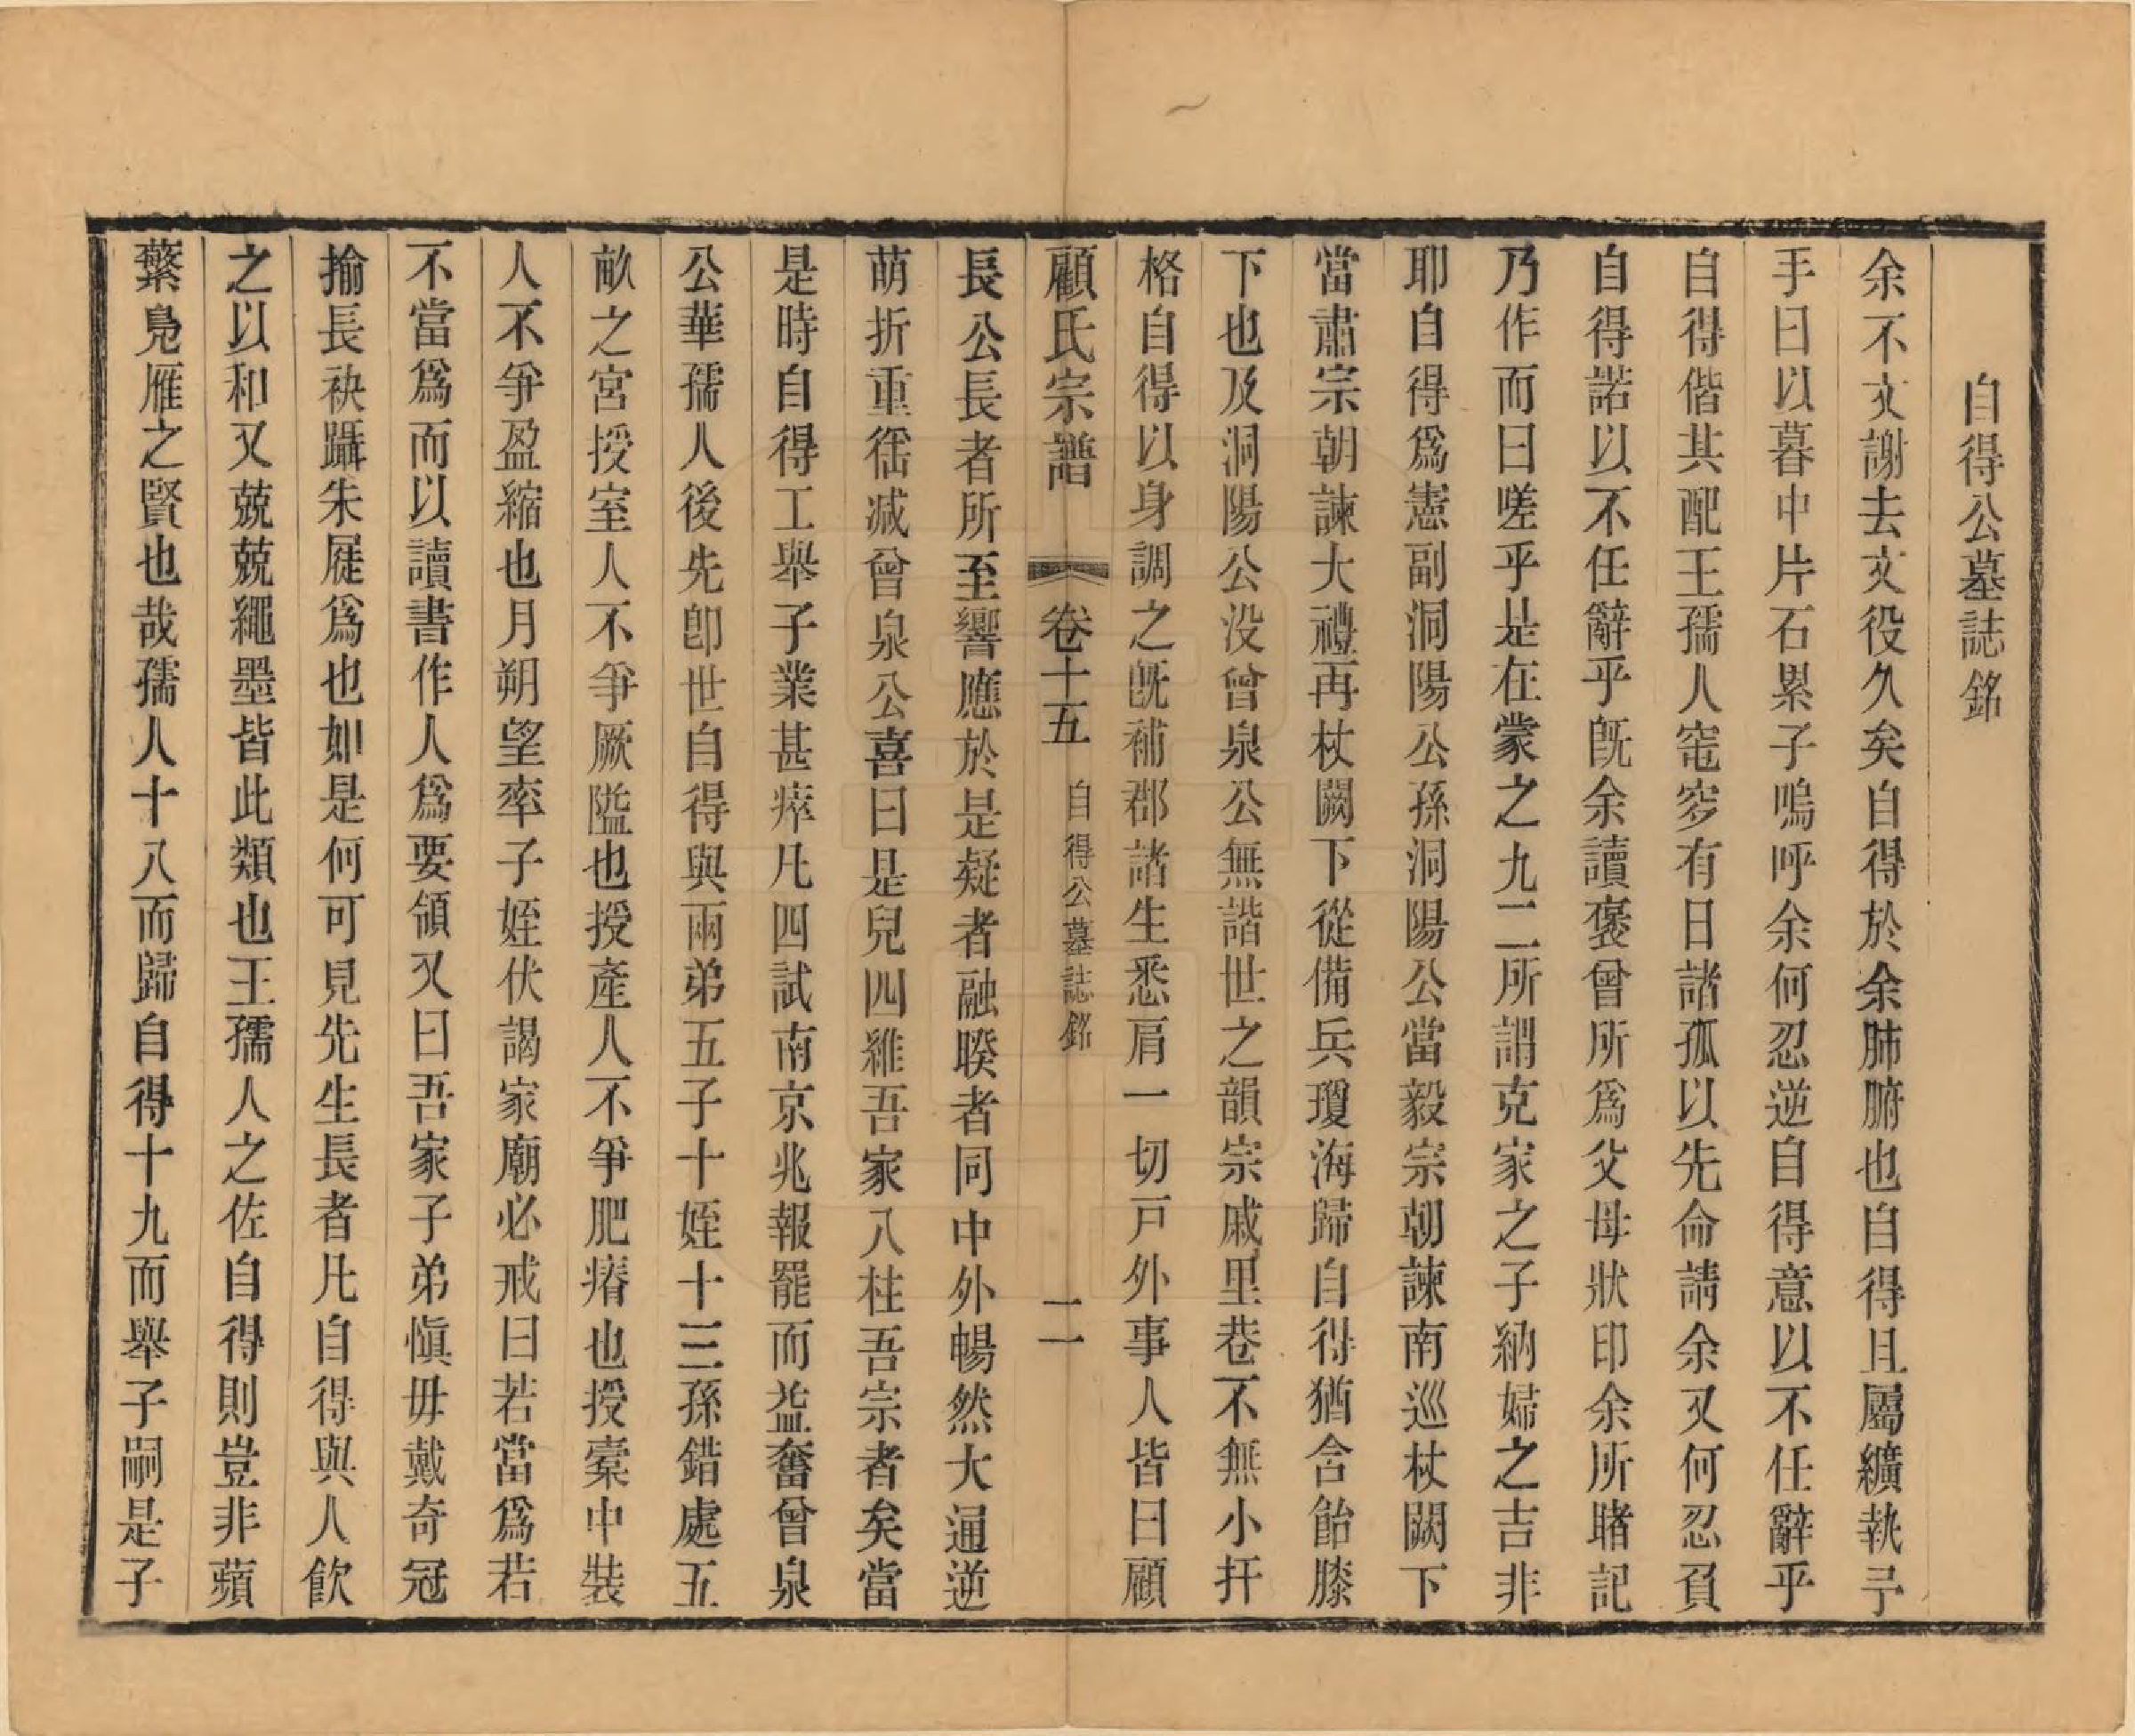 自得公墓誌銘
余不文謝去文役久矣自得於余肺腑也自得且屬纊執予
手曰以暮中片石累子嗚呼余何忍逆自得意以不任辭乎
自得偕其配王孺人窀穸有日諸孤以先命請余又何忍負
自得諾以不任辭乎旣余讀褒曾所爲父母狀印余所睹記
乃作而曰嗟乎是在蒙之九二所謂克家之子納婦之吉非
耶自得爲憲副洞陽公孫洞陽公當毅宗朝諫南巡杖闕下
當肅宗朝諫大禮再杖闕下從備兵瓊海歸自得猶含飴膝
下也及洞陽公没曾泉公無諧世之韻宗戚里巷不無小扞
格自得以身調之旣補郡諸生悉肩一切戸外事人皆曰顧
顧氏宗譜 卷十五 自得公墓誌銘 二
長公長者所至響應於是疑者融暌者同中外暢然大通逆
萌折重徭减曾泉公喜曰是兒四維吾家八柱吾宗者矣當
是時自得工舉子業甚瘁凡四試南京兆報罷而益奮曾泉
公華孺人後先卽世自得與兩弟五子十姪十三孫錯處五
畝之宮授室人不爭厥隘也授產人不爭肥瘠也授橐中裝
人不爭盈縮也月朔望率子姪伏謁家廟必戒曰若當爲若
不當爲而以讀書作人爲要領又曰吾家子弟愼毋戴奇冠
揄長袂躡朱屣爲也如是何可見先生長者凡自得與人飲
之以和又兢兢繩墨皆此類也王孺人之佐自得則豈非蘋
蘩鳬雁之賢也哉孺人十八而歸自得十九而舉子嗣是子